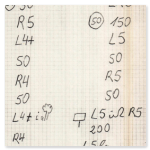 50
R5
L4t
50
R4
50
L4t i
R4
50 150
L5
50
R5
50
L5 i R5
200
150